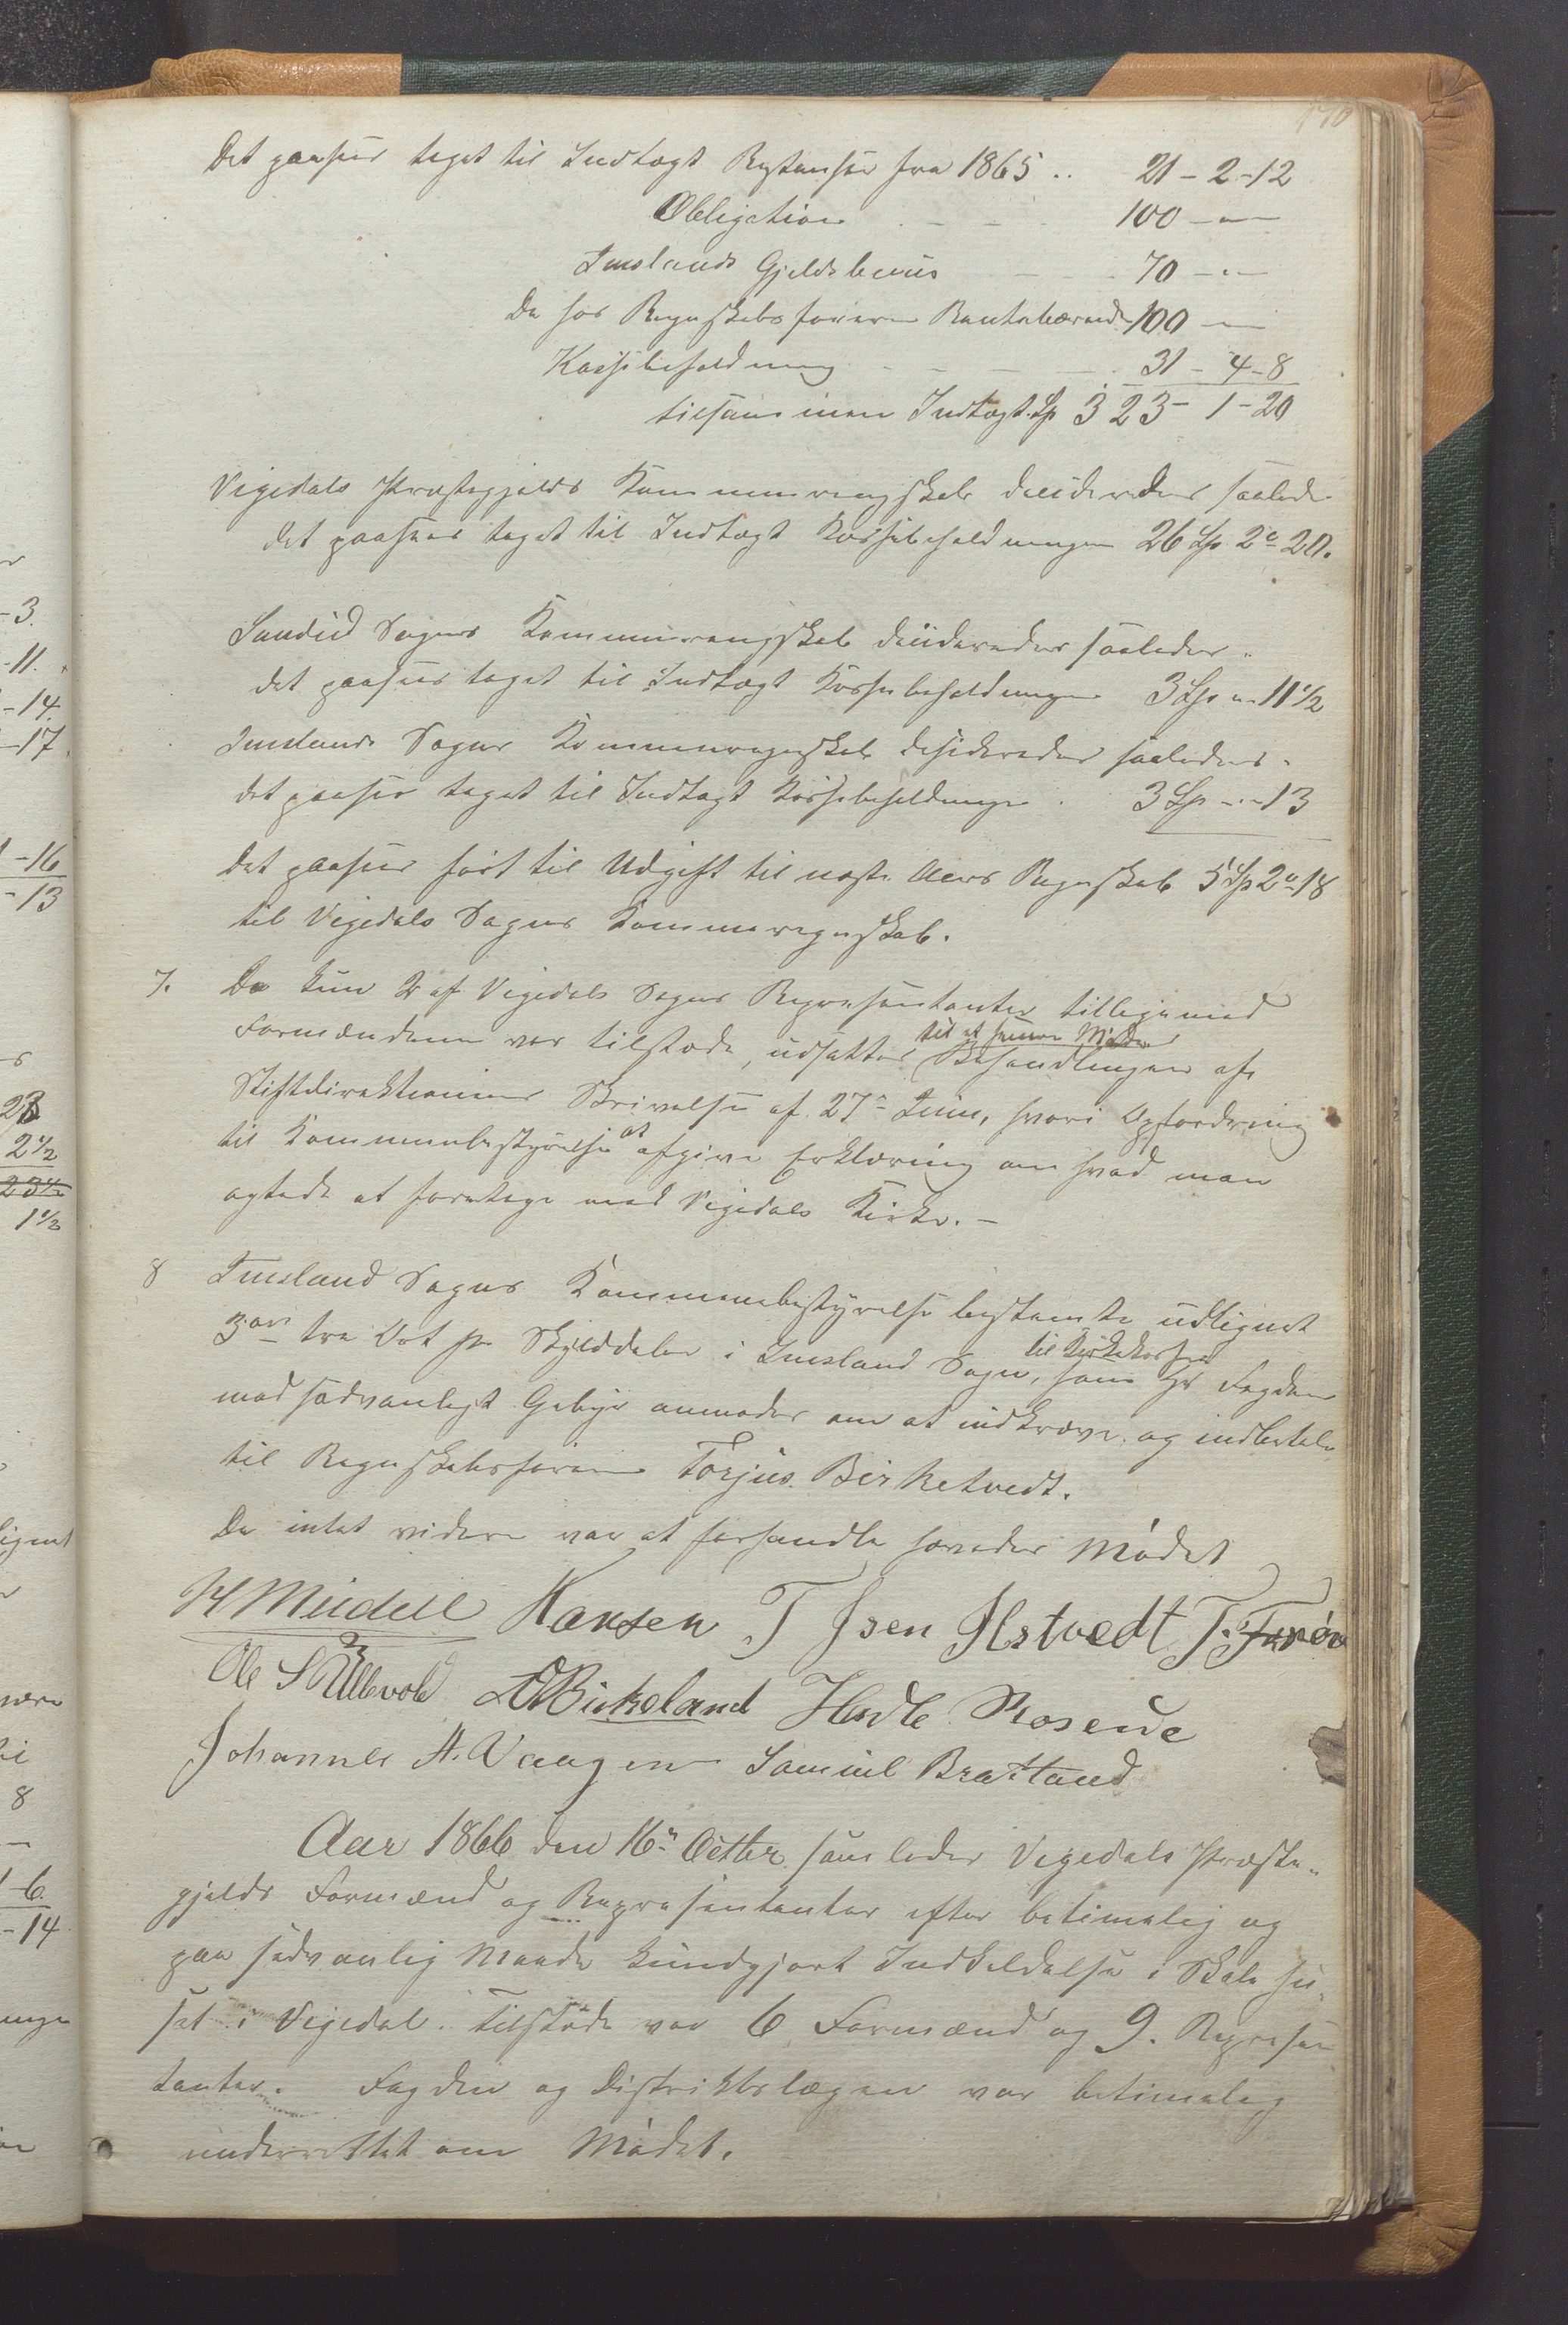 170
Det paasees taget til Indtægt Restanser fra 1865 .. 21 - 2 - 12
Obligation 100 - " -
Imslands Gjeldsbeviis 70 - " -
De hos Regnskabsføreren Rentebærende 100 - " -
Kassebeholdning 31 - 4 - 8
tilsammen Indtægt Sp 323 - 1 - 20
Vigedals Præstegjelds Kommuneregnskab desideredes saaledes
det paasees taget til Indtægt Kassebeholdningen 26 Sp. 2 " 20.
Sandeid Sogns Kommuneregnskab desideredes saaledes.
det paasees taget til Indtægt Kassebeholdningen 3 Sp " 11 1/2
Imslands Sogns Kommuneregnskab desideredes saaledes.
det paasees taget til Indtægt Kassebeholdningen . 3 Sp - " - 13
Det paasees ført til Udgift til næste Aars Regnskab 5 Sp 2 " 18
til Vigedals Sogns Kommuneregnskab.
7. Da kun 2 af Vigedals Sogns Repræsentanter tilligemed
Formændene var tilstede, udsattes til et senere Møde Behandlingen af
Stiftdirektionens Skrivelse af 27de Juni, hvori Opfordring
til Kommunebestyrelsen at afgive Erklæring om hvad man
agtede at foretage med Vigedals Kirke. -
8 Imsland Sogns Kommunebestyrelse bestemte udlignet
3 ort tre Ort pr Skylddaler i Imsland Sogn, til Kirkekassen som Hr Fogden
mod sædvanligt Gebyr anmodes om at indkræve og indbetale
til Regnskabsføreren Torjus Birketvedt.
Da intet videre var at forhandle hævedes Mødet
H Meidell Hansen T Isen Ilstvedt T.
Ole S Ullevold Birkeland Hadle Roseide
Johannes A. Vaagen Samuel Bratland
Aar 1866 den 16n Octbr samledes Vigedals Præste-
gjelds Formænd og Repræsentanter efter betimelig og
paa sædvanlig Maade kundgjort Indkaldelse i Skolehu-
set i Vigedal. Tilstede var 6 Formænd og 9. Repræsen
tanter. Fogden og Distriktslægen var betimelig
underrettet om Mødet.